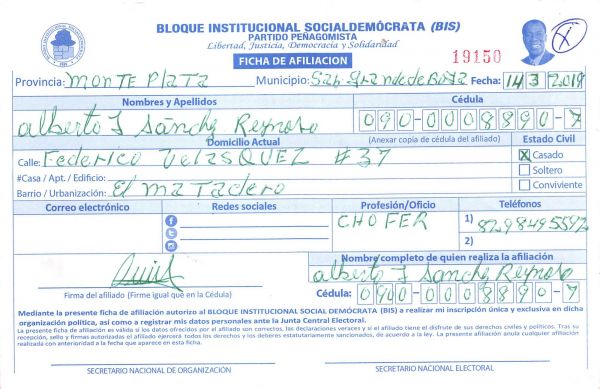 BLOQUE INSTITUCIONAL SOCIALDEMÓCRATA (BIS)
PARTIDO PEÑAGOMISTA
Libertad, Justicia, Democracia y Solidaridad
FICHA DE AFILIACION
19150
Provincia: Monte Plata Municipio: Sab. Grande de Boya Fecha: 14 3 2019
Nombres y Apellidos Cédula
alberto J Sánche Reynoso 090-0008890-7
Domicilio Actual (Anexar copia de cédula del afiliado) Estado Civil
Calle: Federico VelasQUEZ #37 X Casado
#Casa / Apt. / Edificio: Soltero
Barrio / Urbanización: El matadero Conviviente
Correo electrónico Redes sociales Profesión/Oficio Teléfonos
CHOFER 1) 8298495592
2)
Nombre completo de quien realiza la afiliación
alberto J Sanche Reynoso
Firma del afiliado (Firme igual que en la Cédula) Cédula: 090-0008890-7
Mediante la presente ficha de afiliación autorizo al BLOQUE INSTITUCIONAL SOCIAL DEMÓCRATA (BIS) a realizar mi inscripción única y exclusiva en dicha
organización política, así como a registrar mis datos personales ante la Junta Central Electoral.
La presente ficha de afiliación es valida si los datos ofrecidos por el afiliado son correctos, las declaraciones veraces y si el afiliado tiene el disfrute de sus derechos civiles y políticos. Tras su
recepción, sello y firmas autorizadas el afiliado ejercerá todos los derechos y los deberes estatutariamente sancionados, de acuerdo a la ley. La presente afiliación anula cualquier afiliación
realizada con anterioridad a la fecha que aparece en esta ficha.
SECRETARIO NACIONAL DE ORGANIZACIÓN SECRETARIO NACIONAL ELECTORAL